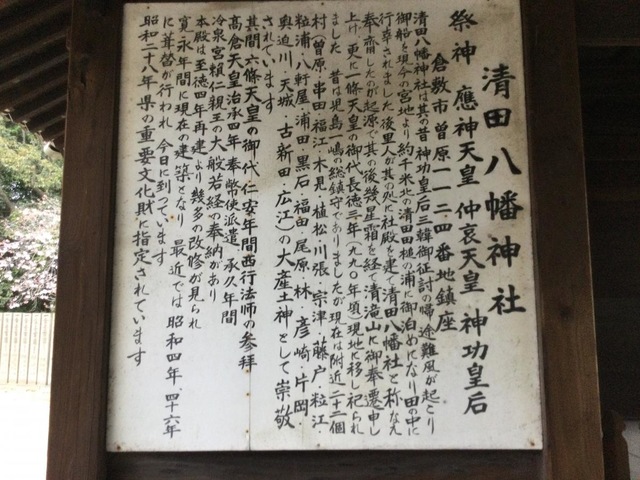 清田八幡神社
祭神 應神天皇 仲哀天皇 神功皇后
倉敷市曽原一一二四番地鎮座
清田八幡神社は其の昔神功皇后三韓御征討の帰途難風が起こり
御船を現今の宮地より約千米北の清田田槌の浦に御泊めになり田の中に
行幸されました後里人が其の処に社殿を建て清田八幡社と称なえ
奉斎したのが起源で其の後幾星霜を経て清滝山に御奉遷申し
上げ更に一條天皇の御代長徳三年(九九〇年頃)現地に移し祀られ
ました 昔は児島一嶋の総鎮守でありましたが現在は附近二十二個
村(曽原・串田・福江・木見・植松・川張・宗津・藤戸・粒江・
粒浦・八軒屋・浦田・黒石・福田・尾原・林・彦崎・片岡・
奥迫川・天城・古新田・広江)の大産土神として崇敬
されています
其間六條天皇の御代仁安年間西行法師の参拜
高倉天皇治承四年奉幣使派遣・承久年間
冷泉宮頼仁親王の大般若経の奉納があり
本殿は至徳四年再建より幾多の改修が見られ
寛永年間に現在の建築となり 最近では昭和四年・四十六年
に葺替が行われ今日に到っています
昭和二十八年県の重要文化財に指定されています